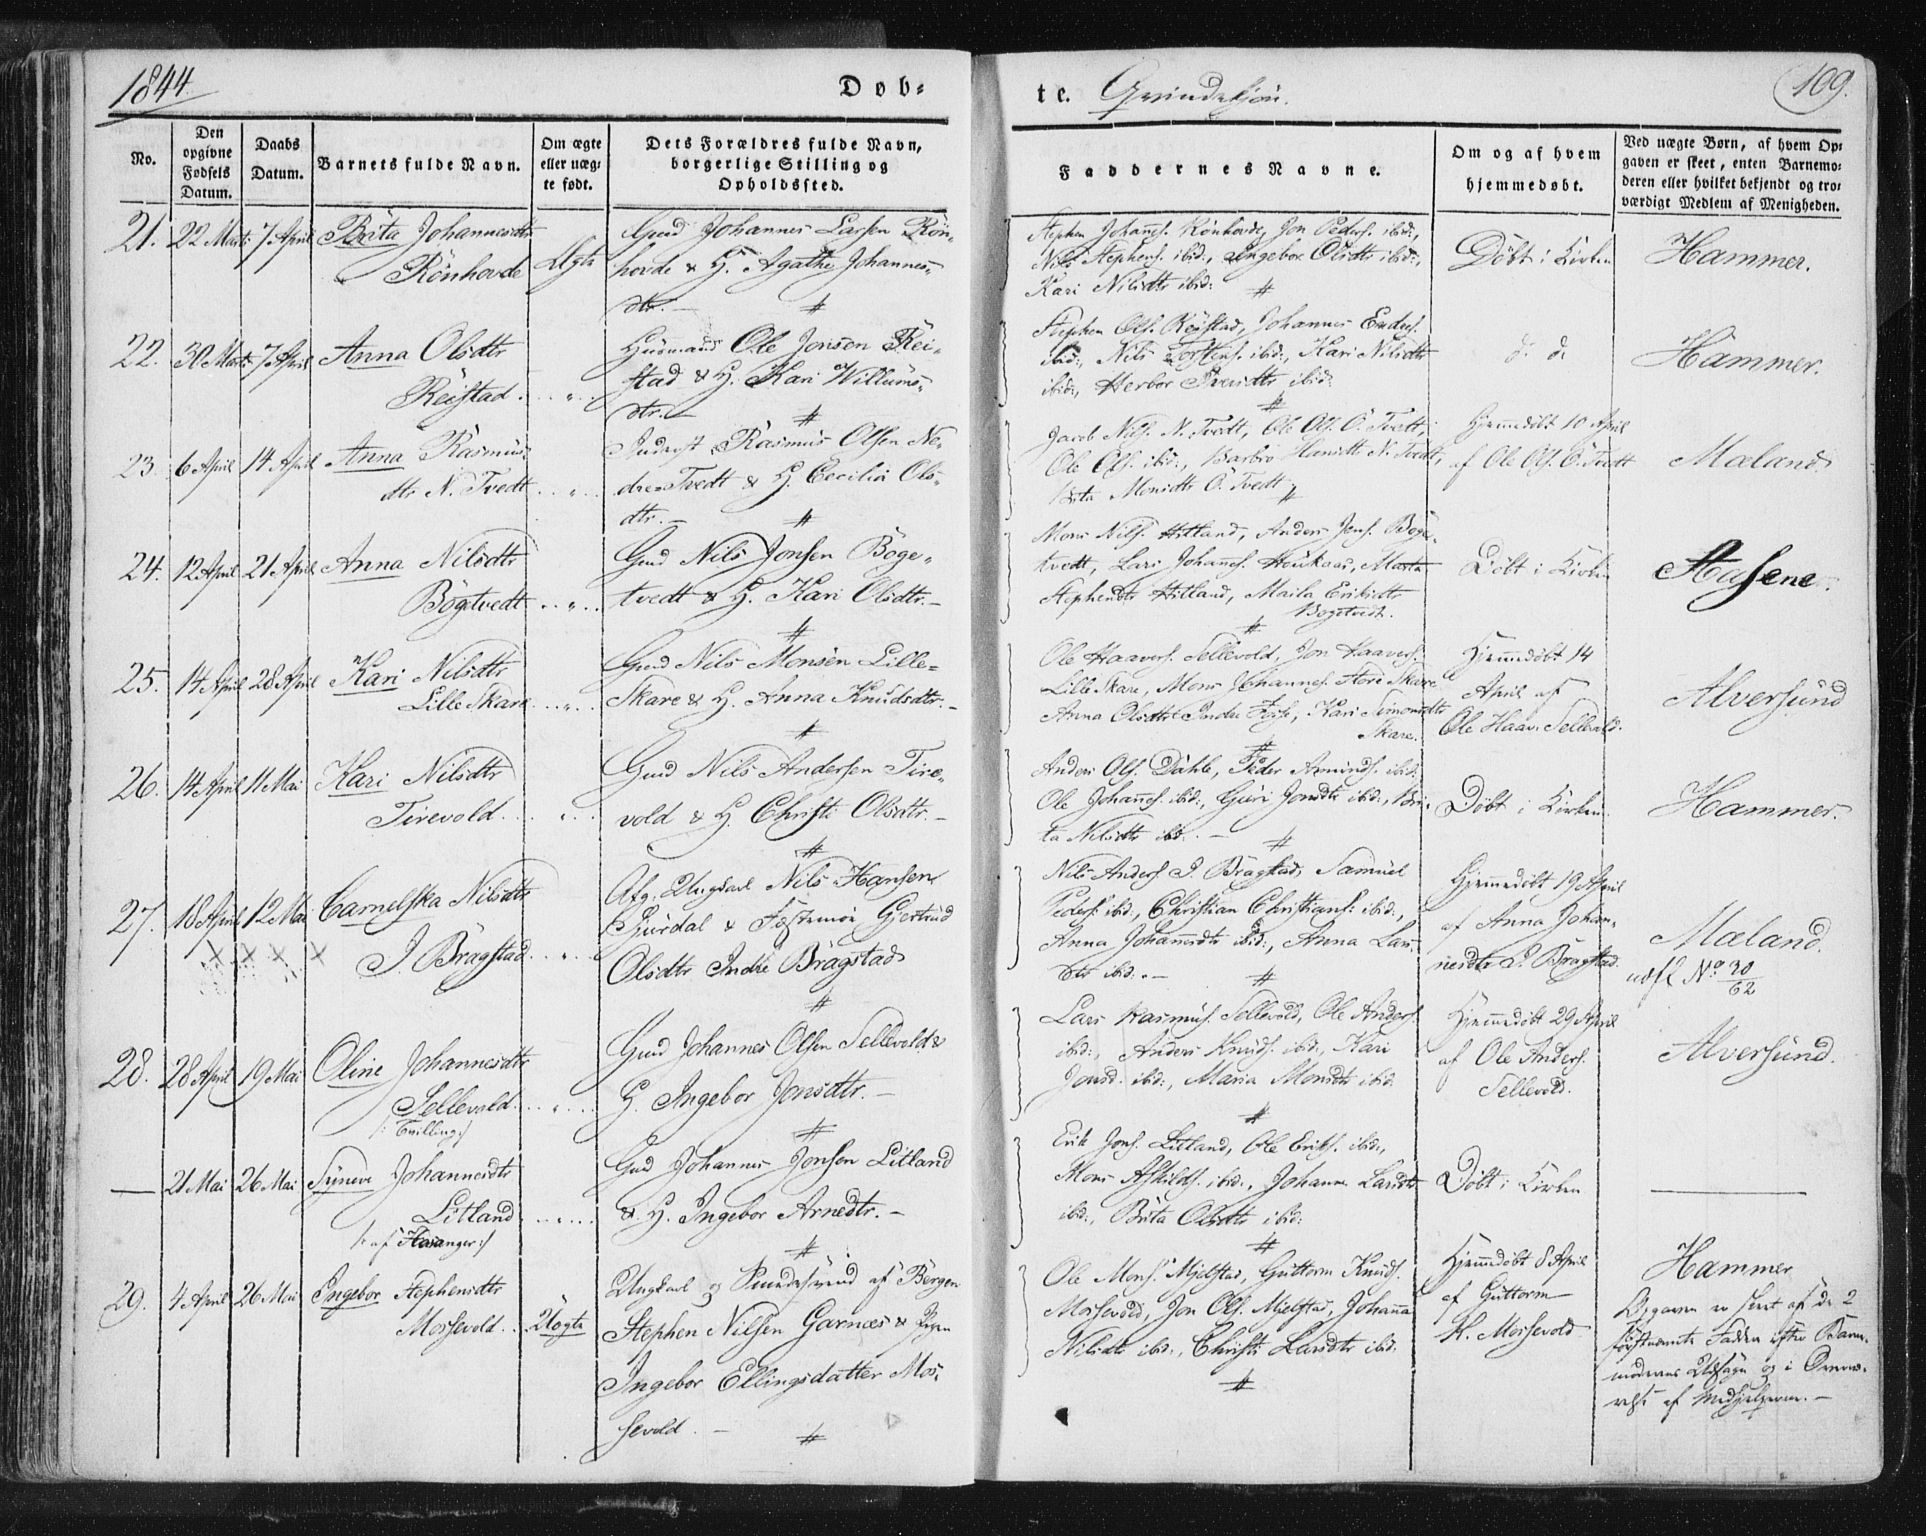 1844.
Døb-
te. Qvindekjön.
109.
No.
Den opgivne Fødsels Datum.
Daabs Datum.
Barnets fulde Navn.
Om ægte eller uæg- te født.
Dets Forældres fulde Navn, borgerlige Stilling og Opholdssted.
Faddernes Navne.
Om og af hvem hjemmedøbt.
Ved uægte Børn, af hvem Op- gaven er skeet, enten Barnemo- deren eller hvilket bekjendt og tro- værdigt Medlem af Menigheden.
21. 22 Marts 7 April Brita Johannesdtr
Rönhovde
Ægte
Gmd Johannes Larsen Rön-
hovde & H. Agathe Johannes-
dtr. -
Stephen Johans. Rönhovde, Jon Peders. ibid:,
Nils Stephens. ibid:, Ingebor Olsdtr ibid:,
Kari Nilsdtr ibid:
Döbt i Kirken
Hammer.
22. 30 Marts 7 April Anna Olsdtr
Reistad.
Huusmand Ole Jonsen Rei-
stad & H. Kari Willums-
dtr. -
Stephen Ols. Reistad, Johannes Enders.
ibid:, Nils Torstens. ibid:, Kari Nilsdtr
ibid:, Herbor Iversdtr ibid:
d. d.
Hammer.
23. 6 April 14 April Anna Rasmus-
dtr N. Tvedt
Inderst Rasmus Olsen Ne-
dre Tvedt & H. Cecilia Ols-
dtr. -
Jacob Nils. N. Tvedt, Ole Ols. Ö. Tvedt,
Ole Ols. ibid:, Barbro Hansdtr N. Tvedt,
Brita Monsdtr Ö. Tvedt
Hjemmedöbt 10 April
af Ole Ols. Ö. Tvedt
Mæland
24. 12 April 21 April Anna Nilsdtr
Bögetvedt
Gmd Nils Jonsen Böge-
tvedt & H. Kari Olsdtr. -
Mons Nils. Hitland, Anders Jens. Böge-
tvedt, Lars Johans. Houkaas, Marta
Stephensdtr Hitland, Marita Eriksdtr
Bogetvedt.
Döbt i Kirken
Hasene.
25. 14 April 28 April Kari Nilsdtr
Lille Skare
Gmd Nils Monsen Lille-
Skare & H. Anna Knudsdtr. -
Ole Haavers. Sellevold, Jon Haavers.
Lille Skare, Mons Johannes. Store Skare
Anna Olsdtr Indre , Kari Simonsdtr
Skare.
Hjemmedöbt 14
April af
Ole Haav. Sellevold.
Alversund
26. 14 April 11 Mai Kari Nilsdtr
Tirevold.
Gmd Nils Andersen Tire-
vold & H. Christi Olsdtr. -
Anders Ols. Dahle, Peder Amunds. ibid:
Ole Johans. ibid:, Guri Jonsdtr ibid:, Bri-
ta Nilsdtr ibd. -
Döbt i Kirken.
Hammer.
27. 18 April 12 Mai Carnelska Nilsdtr
I. Brägstad
Afg. Ungkarl Nils Hansen
Gurdal & Fæstemöe Gjertrud
Olsdtr Indre Brägstad
Nils Anders. I. Brägstad, Samuel
Peders. ibid:, Christian Christians: ibid:,
Anna Johannesdtr ibid:, Anna Lars-
dtr ibid:. -
Hjemmedöbt 19 April
af Anna Johan-
nesdtr I. Brägstad.
Mæland.
udfl No 30/62
28. 28 April 19 Mai Oline Johannesdtr
Sellevold
/: Tvilling :/
Gmd Johannes Olsen Sellevold &
H. Ingebor Jonsdtr. -
Lars Rasmus. Sellevold, Ole Anders.
ibid:, Anders Knuds. ibid:, Kari
Jonsd. ibid:, Maria Monsdtr ibid:
Hjemmedöbt 29 April
af Ole Anders.
Sellevold.
Alversund.
— 21 Mai 26 Mai Syneve Johannesdtr
Litland
/: af Hosanger :/
Gmd Johannes Jonsen Litland
& H. Ingebor Arnedtr. -
Erik Jons. Litland, Ole Eriks. ibid:,
Mons Askilds. ibid:, Johanne Larsdtr
ibid:, Brita Olsdtr ibid:
Döbt i Kirken
29. 4 April 26 Mai Ingebor Stephensdtr
Mossevold.
Uægte
Ungkarl og af Bergen
Stephen Nilsen Garnæs & Pigen
Ingebor Ellingsdatter Mos-
sevold. -
Ole Mons. Mjelstad, Guttorm Knuds.
Mossevold, Jon Ols. Mjelstad, Johanna
Nilsdtr ibid:, Christi Larsdtr ibid:
Hjemmedöbt 8 April
af Guttorm
K. Mossevold
Hammer
Opgaven er skeet af de 2
förstnævnte Faddere efter Barne-
moderens Udsagn og i Overvæ-
relse af Medhjelperne. -